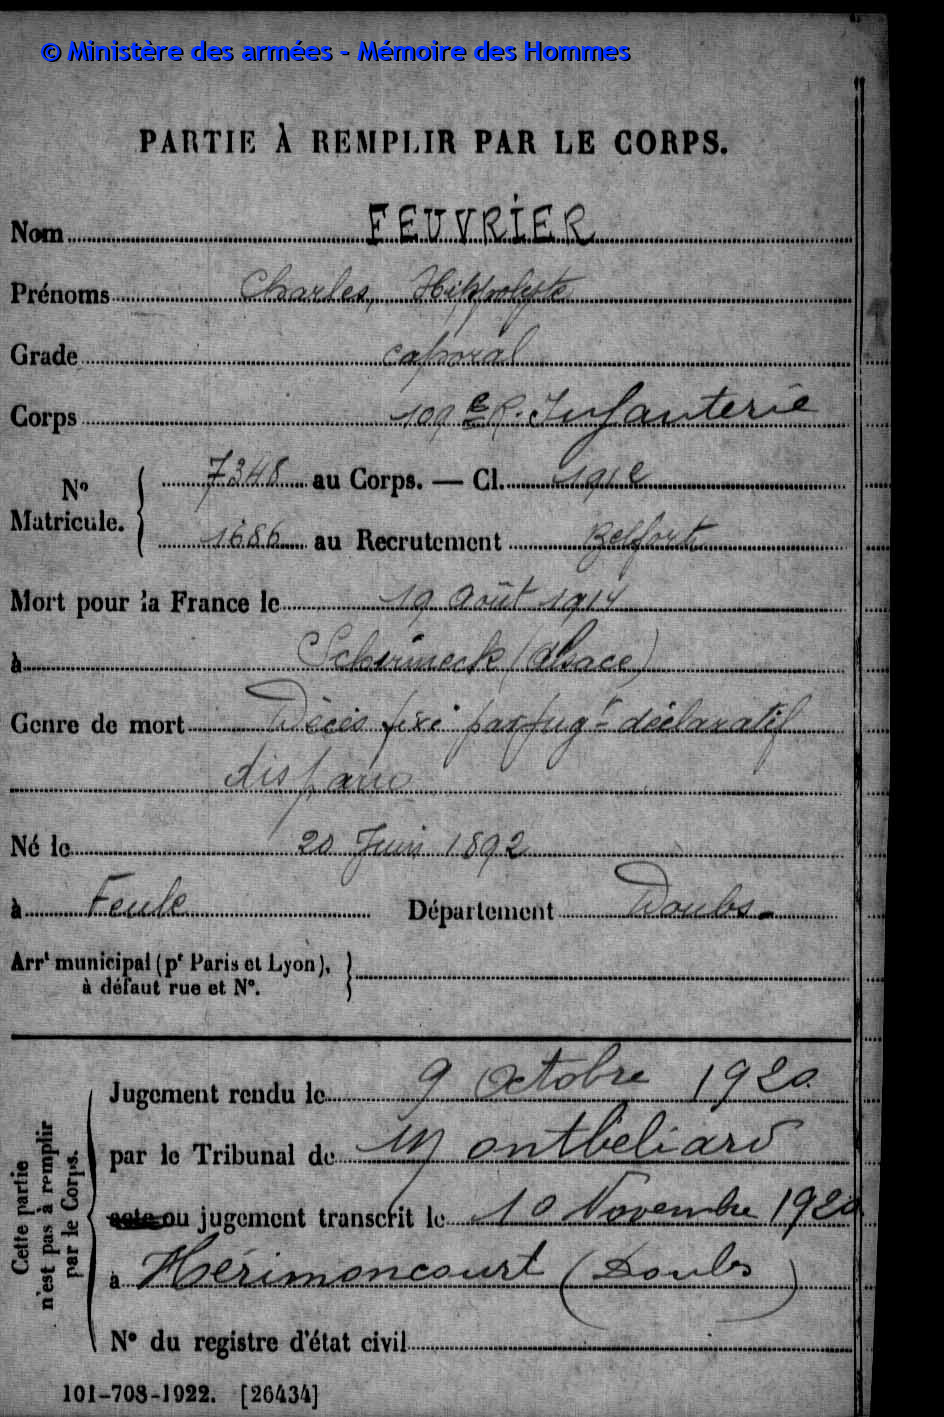 © Ministère des armées - Mémoire des Hommes
PARTIE À REMPLIR PAR LE CORPS.
Nom FEUVRIER
Prénoms Charles, Hippolyte
Grade caporal
Corps 109e R. Infanterie
N° Matricule. 7348 au Corps. — Cl. 1912
1686 au Recrutement Belfort
Mort pour la France le 19 Août 1914
à Schirmeck (Alsace)
Genre de mort Décès fixé par jugt déclaratif
disparu
Né le 20 Juin 1892
à Feule Département Doubs
Arrt municipal (pr Paris et Lyon),
à défaut rue et N°.
Cette partie n'est pas à remplir par le Corps.
Jugement rendu le 9 Octobre 1920
par le Tribunal de Montbéliard
acte ou jugement transcrit le 10 Novembre 1920
à Hérimoncourt (Doubs)
N° du registre d'état civil
101-708-1922. [26434]